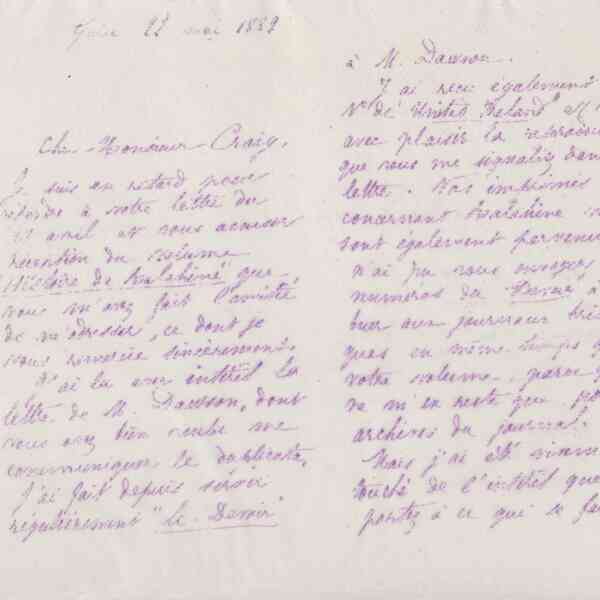 Guise 22 mai 1889
Cher Monsieur Craig,
Je suis en retard pour
répondre à votre lettre du
avril et vous accuser
réception du volume
"Histoire de Ralahine" que
vous m'avez fait l'amitié
de m'adresser, ce dont je
vous remercie sincèrement.
J'ai lu avec intérêt la
lettre de M. Dawson, dont
vous avez bien voulu me
communiquer le duplicata.
J'ai fait depuis servir
régulièrement "le Devoir"
à M. Dawson.
J'ai reçu également
Nº de "United Ireland"
avec plaisir la
que vous me signaliez dans
lettre. Vos imprimés
concernant Ralahine
sont également parvenus
n'ai pu vous envoyer
numéros du Devoir à
buer aux journaux
ques en même temps
votre volume, parce
ne m'en reste que
archives du journal.
Mais j'ai été
touché de l'intérêt que
portez à ce qui se